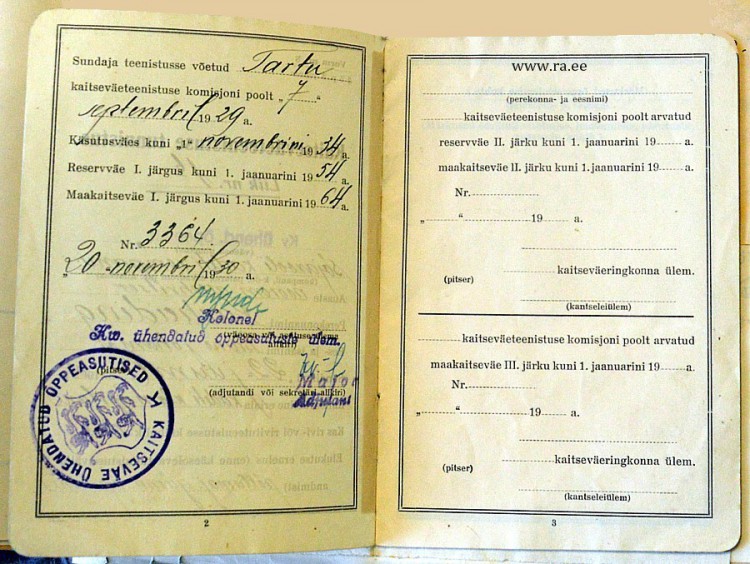 Sundaja teenistusse võetud Tartu
kaitseväeteenistuse komisjoni poolt „ 7 “
septembril 1929 a.
Käsutusväes kuni „1“ novembrini 1934 a.
Reservväe I. järgus kuni 1. jaanuarini 1954 a.
Maakaitseväe I. järgus kuni 1. jaanuarini 1964 a.
Nr. 3364.
„20 novembril 1930 a.
Kolonel
Kw. ühendatud õppeasutuste ülem.
allkiri)
(pitser)
Major
(adjutandi või sekretäri allkiri)
Adjutant
KAITSEVÄE ÜHENDATUD ÕPPEASUTISED
2
www.ra.ee
(perekonna- ja eesnimi)
kaitseväeteenistuse komisjoni poolt arvatud
reservväe II. järku kuni 1. jaanuarini 19 a.
maakaitseväe II. järku kuni 1. jaanuarini 19 a.
Nr.
„ “ 19 a.
kaitseväeringkonna ülem.
(pitser)
(kantseleiülem)
kaitseväeteenistuse komisjoni poolt arvatud
maakaitseväe III. järgu kuni 1. jaanuarini 19 a.
Nr.
„ “ 19 a.
(pitser) kaitseväeringkonna ülem.
(kantseleiülem)
3